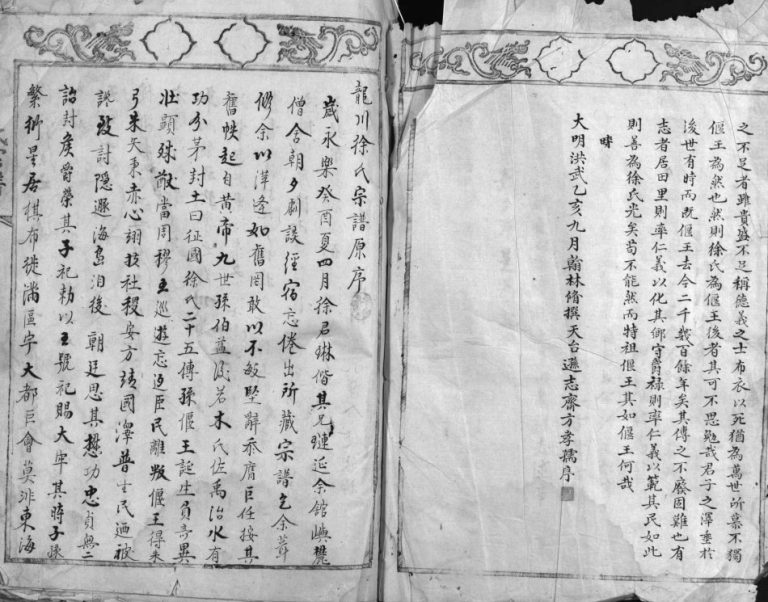 之不足者雖貴盛不足稱德義之士布衣以死猶為萬世所慕不獨
偃王為然也然則徐氏為偃王後者其可不思勉哉君子之澤垂於
後世有時而既偃王去今二千幾百餘年矣其傳之不廢固難也有
志者居田里則率仁義以化其鄉守爵祿則率仁義以範其民如此
則善為徐氏光矣苟不能然而特祖偃王其如偃王何哉
時
大明洪武乙亥九月翰林脩撰天台遜志齋方孝孺序
龍川徐氏宗譜原序
歲永樂癸酉夏四月徐君琳偕其兄璉延余館嶼
僧舍朝夕劇談經宿忘倦出所藏宗譜乞余葺
修余以萍逢如舊罔敢以不敏堅辭忝膺巨任按其
舊帙起自黃帝九世孫伯益後若木氏佐禹治水有
功分茅封土曰征國徐氏二十五傳孫偃王誕生負奇異
壯顯殊猷當周穆王巡遊忘返臣民離叛偃王得朱
弓朱矢秉赤心翊扶社稷安方靖國澤普生民迺被
說致討隱遯海島洎後朝廷思其懋功忠貞無二
詔封侯爵榮其子祀勅以王號祀賜大牢其時子
繁衍星居棋布徙滿區宇大都巨會莫非東海